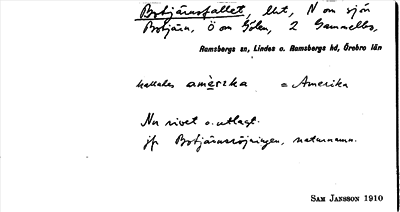 Botjärnsfallet, lht, N om sjön
Botjärn, Ö om Gölen, 2 Gammelbo,
Ramsbergs sn, Lindes o. Ramsbergs hd, Örebro län
kallades amèrika = Amerika
Nu rivet o. utlagt.
jfr Botjärnsröjningen, naturnamn.
SAM JANSSON 1910